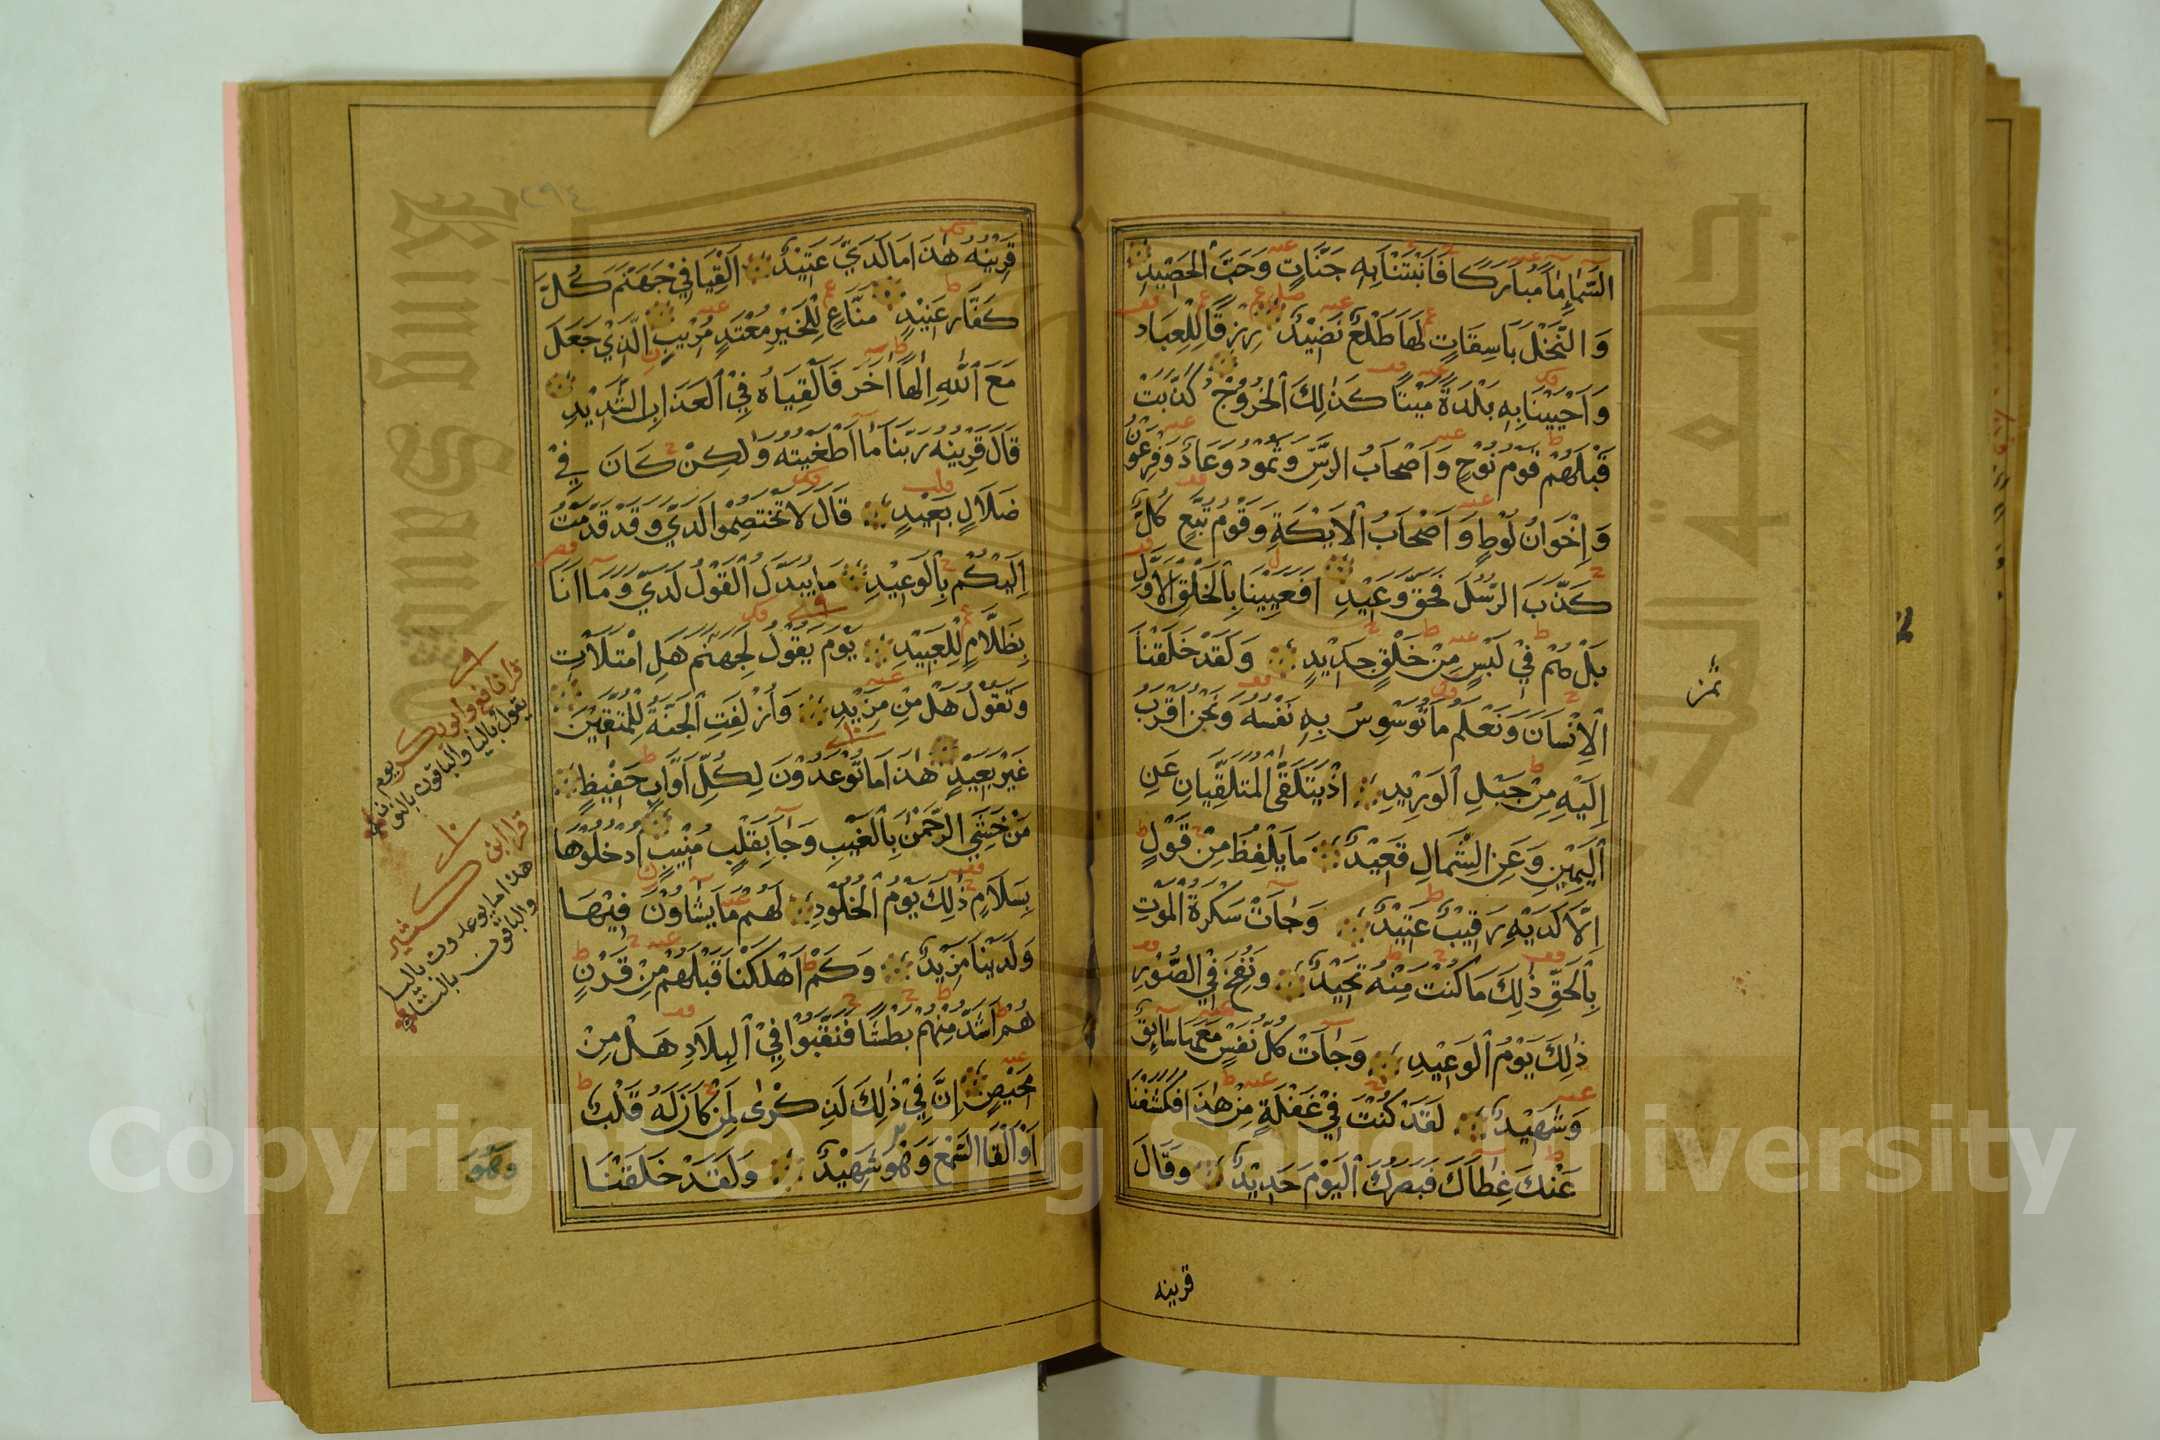 السَّمَاءِ مَاءً مُبَارَكًا فَاَنْبَتْنَا بِه جَنَّاتٍ وَحَبَّ الْحَصِيْدِ
وَ النَّخْلَ بَاسِقَاتٍ لَهَا طَلْعٌ نَضِيْدٌ رِزْقًا لِلْعِبَادِ
وَ اَحْيَيْنَا بِه بَلْدَةً مَيْتًا كَذٰلِكَ الْخُرُوْجُ كَذَّبَتْ
قَبْلَهُمْ قَوْمُ نُوْحٍ وَ اَصْحَابُ الرَّسِّ وَثَمُوْدُ وَعَادٌ وَفِرْعَوْنُ
وَ اِخْوَانُ لُوْطٍ وَ اَصْحَابُ الْاَيْكَةِ وَقَوْمُ تُبَّعٍ كُلٌّ
كَذَّبَ الرُّسُلَ فَحَقَّ وَعِيْدِ اَفَعَيِيْنَا بِالْخَلْقِ الْاَوَّلِ
بَلْ هُمْ فِيْ لَبْسٍ مِنْ خَلْقٍ جَدِيْدٍ وَلَقَدْ خَلَقْنَا
الْاِنْسَانَ وَنَعْلَمُ مَا تُوَسْوِسُ بِه نَفْسُهُ وَنَحْنُ اَقْرَبُ
اِلَيْهِ مِنْ حَبْلِ الْوَرِيْدِ اِذْ يَتَلَقَّى الْمُتَلَقِّيَانِ عَنِ
الْيَمِيْنِ وَعَنِ الشِّمَالِ قَعِيْدٌ مَا يَلْفِظُ مِنْ قَوْلٍ
اِلَّا لَدَيْهِ رَقِيْبٌ عَتِيْدٌ وَجَاءَتْ سَكْرَةُ الْمَوْتِ
بِالْحَقِّ ذٰلِكَ مَا كُنْتَ مِنْهُ تَحِيْدُ وَنُفِخَ فِي الصُّوْرِ
ذٰلِكَ يَوْمُ الْوَعِيْدِ وَجَاءَتْ كُلُّ نَفْسٍ مَعَهَا سَائِقٌ
وَشَهِيْدٌ لَقَدْ كُنْتَ فِيْ غَفْلَةٍ مِنْ هٰذَا فَكَشَفْنَا
عَنْكَ غِطَاءَكَ فَبَصَرُكَ الْيَوْمَ حَدِيْدٌ وَقَالَ
قرينه
ثمن
٢٩٤
قَرِيْنُهُ هٰذَا مَا لَدَيَّ عَتِيْدٌ اَلْقِيَا فِيْ جَهَنَّمَ كُلَّ
كَفَّارٍ عَنِيْدٍ مَنَّاعٍ لِلْخَيْرِ مُعْتَدٍ مُرِيْبٍ الَّذِيْ جَعَلَ
مَعَ اللّٰهِ اِلٰهًا اٰخَرَ فَاَلْقِيَاهُ فِي الْعَذَابِ الشَّدِيْدِ
قَالَ قَرِيْنُهُ رَبَّنَا مَا اَطْغَيْتُهُ وَلٰكِنْ كَانَ فِيْ
ضَلَالٍ بَعِيْدٍ قَالَ لَا تَخْتَصِمُوْا لَدَيَّ وَقَدْ قَدَّمْتُ
اِلَيْكُمْ بِالْوَعِيْدِ مَا يُبَدَّلُ الْقَوْلُ لَدَيَّ وَمَا اَنَا
بِظَلَّامٍ لِلْعَبِيْدِ يَوْمَ يَقُوْلُ لِجَهَنَّمَ هَلِ امْتَلَأْتِ
وَتَقُوْلُ هَلْ مِنْ مَزِيْدٍ وَاُزْلِفَتِ الْجَنَّةُ لِلْمُتَّقِيْنَ
غَيْرَ بَعِيْدٍ هٰذَا مَا تُوْعَدُوْنَ لِكُلِّ اَوَّابٍ حَفِيْظٍ
مَنْ خَشِيَ الرَّحْمٰنَ بِالْغَيْبِ وَجَاءَ بِقَلْبٍ مُنِيْبٍ اُدْخُلُوْهَا
بِسَلَامٍ ذٰلِكَ يَوْمُ الْخُلُوْدِ لَهُمْ مَا يَشَاؤُنَ فِيْهَا
وَلَدَيْنَا مَزِيْدٌ وَكَمْ اَهْلَكْنَا قَبْلَهُمْ مِنْ قَرْنٍ
هُمْ اَشَدُّ مِنْهُمْ بَطْشًا فَنَقَّبُوْا فِي الْبِلَادِ هَلْ مِنْ
مَحِيْصٍ اِنَّ فِيْ ذٰلِكَ لَذِكْرٰى لِمَنْ كَانَ لَهُ قَلْبٌ
اَوْ اَلْقَى السَّمْعَ وَهُوَ شَهِيْدٌ وَلَقَدْ خَلَقْنَا
قرا نافع وابو بكر يوم
يقول باليا والباقون بالنون
قرا ابن كثير
هذا ما يوعدون باليا
والباقون بالتاء
Copyright © King Saud University
King Saud
جامعة الملك